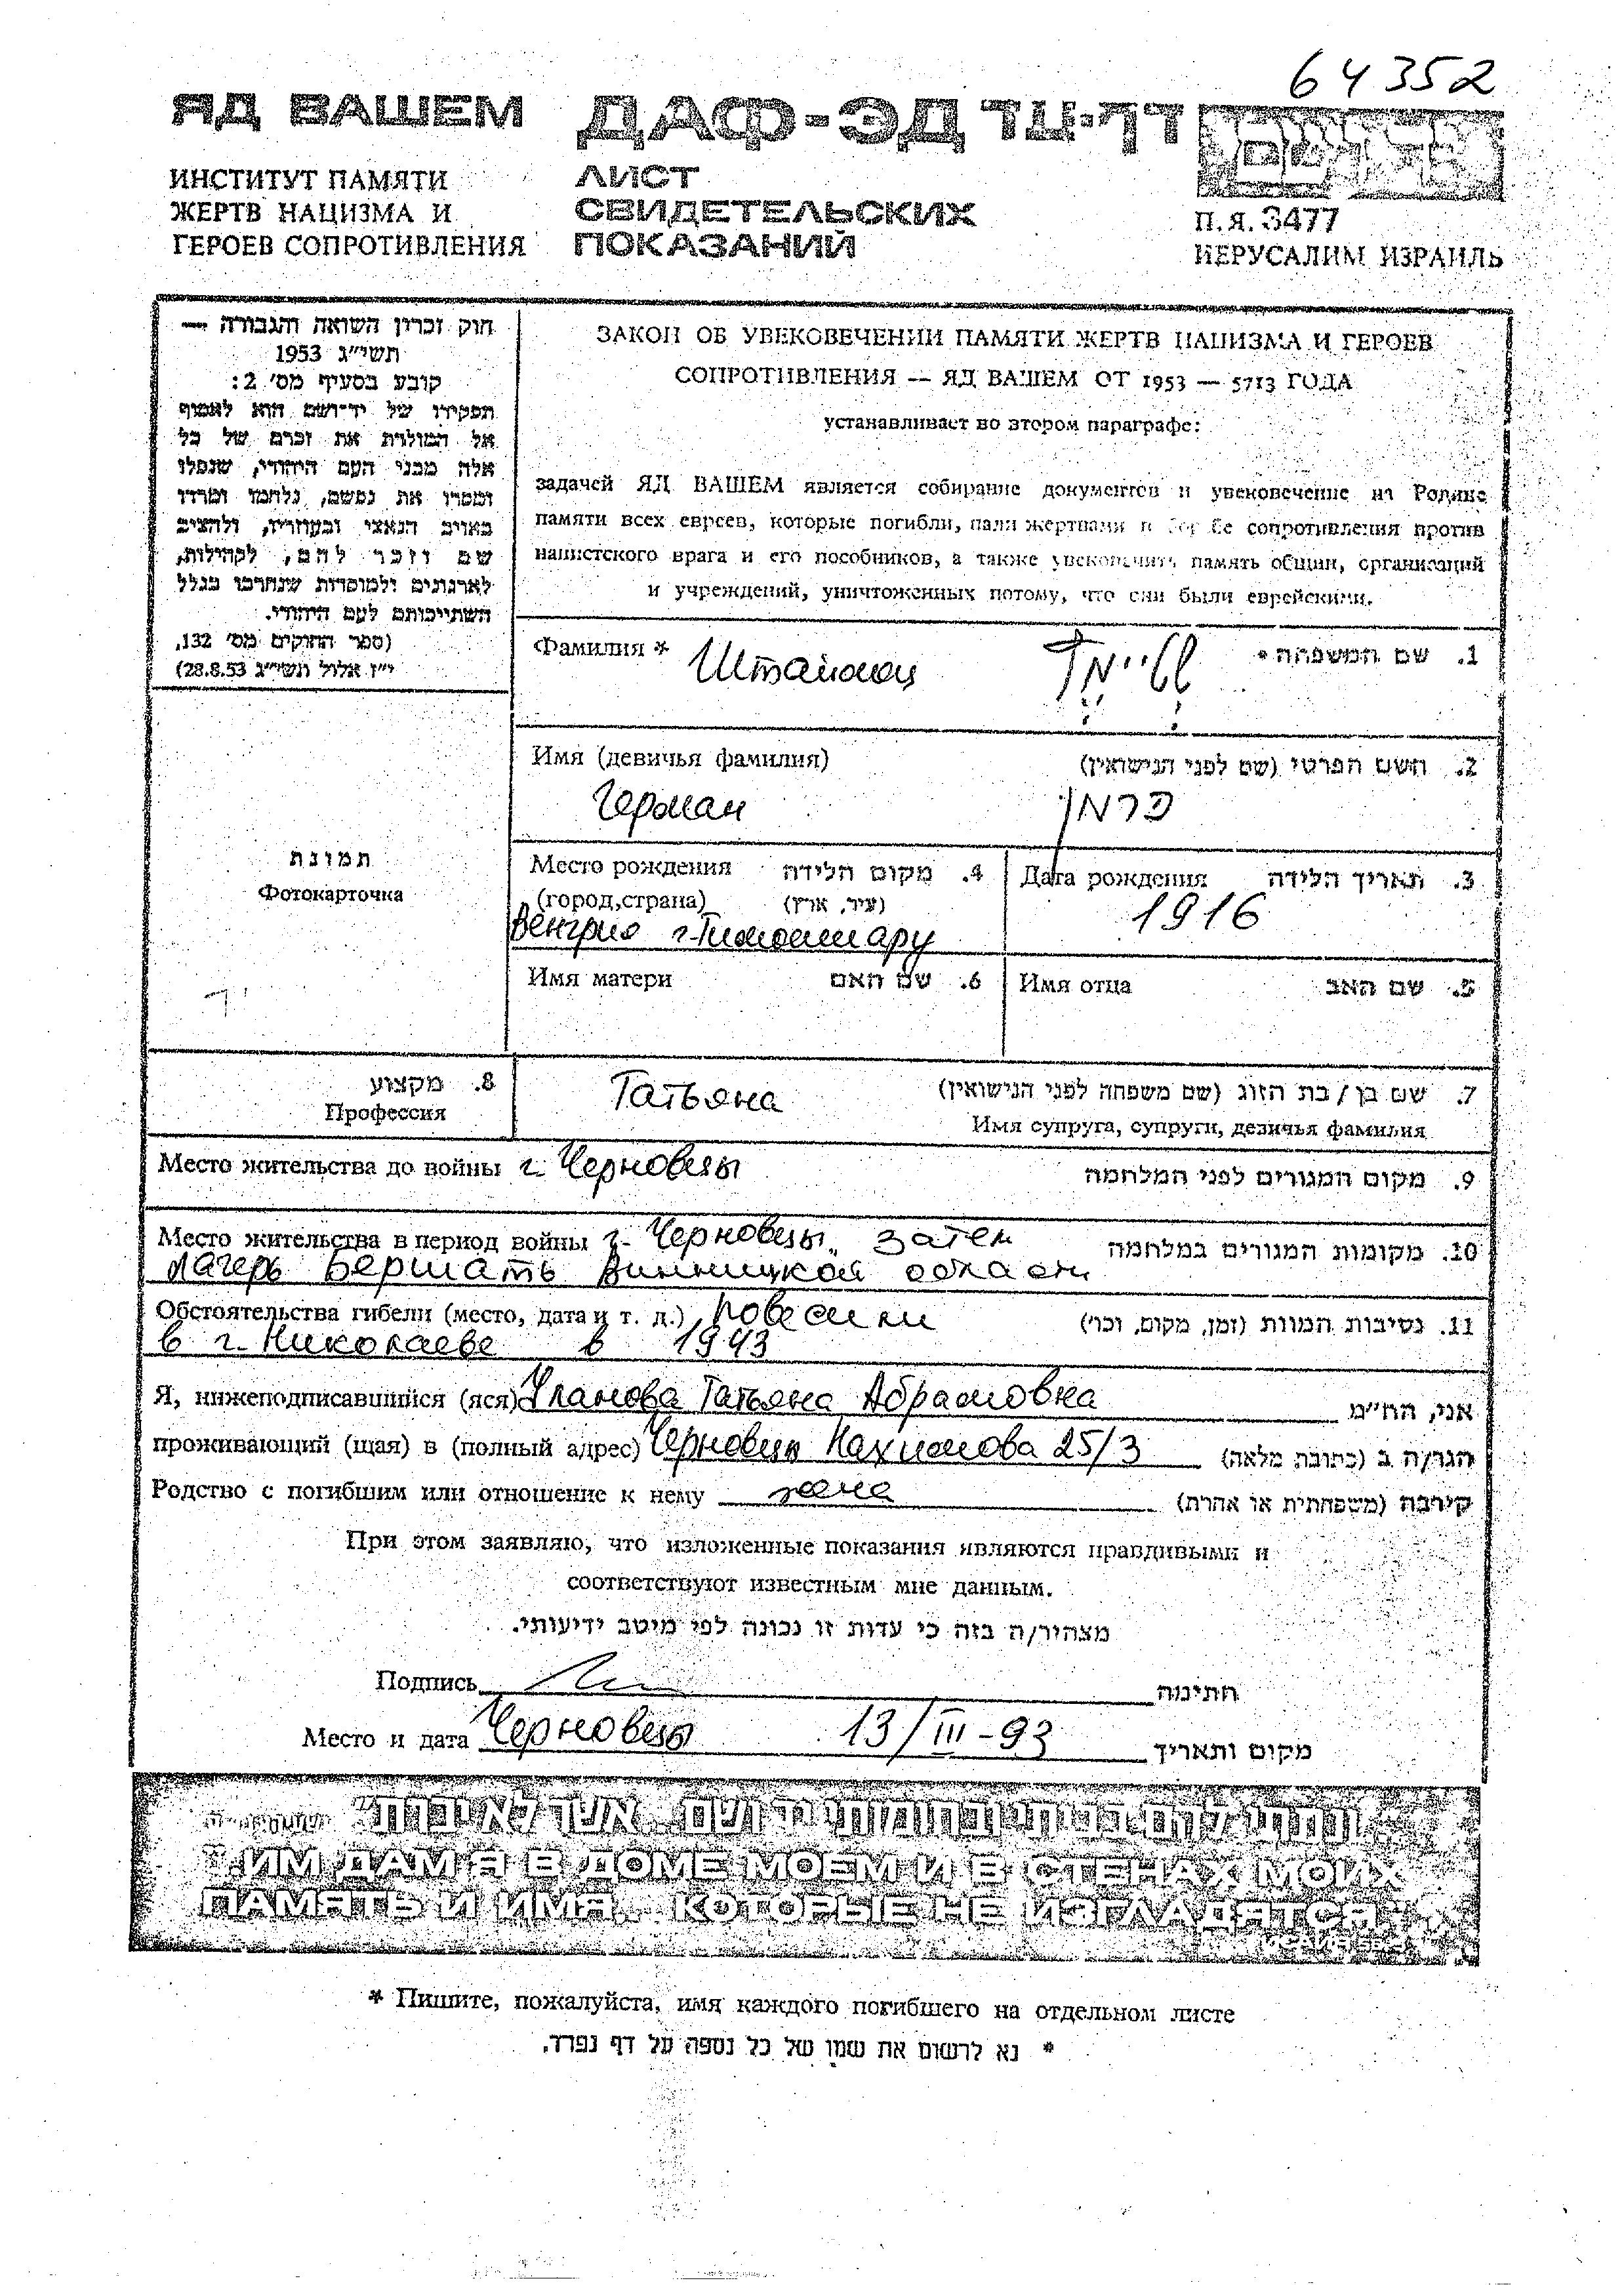 64352
ЯД ВАШЕМ ДАФ-ЭД דף-עד
ИНСТИТУТ ПАМЯТИ
ЖЕРТВ НАЦИЗМА И
ГЕРОЕВ СОПРОТИВЛЕНИЯ
ЛИСТ
СВИДЕТЕЛЬСКИХ
ПОКАЗАНИЙ
П.Я. 3477
ИЕРУСАЛИМ ИЗРАИЛЬ
חוק זכרון השואה והגבורה —
תשי״ג 1953
קובע בסעיף מס׳ 2:
תפקידו של יד־ושם הוא לאסוף
אל המולדת את זכרם של כל
אלה מבני העם היהודי, שנפלו
ומסרו את נפשם, נלחמו ומרדו
באויב הנאצי ובעוזריו, ולהציב
שם וזכר להם, לקהילות,
לארגונים ולמוסדות שנחרבו בגלל
השתייכותם לעם היהודי.
(ספר החוקים מס׳ 132,
י״ז אלול תשי״ג 28.8.53)
ЗАКОН ОБ УВЕКОВЕЧЕНИИ ПАМЯТИ ЖЕРТВ НАЦИЗМА И ГЕРОЕВ
СОПРОТИВЛЕНИЯ — ЯД ВАШЕМ ОТ 1953 — 5713 ГОДА
устанавливает во втором параграфе:
задачей ЯД ВАШЕМ является собирание документов и увековечение на Родине
памяти всех евреев, которые погибли, пали жертвами в борьбе сопротивления против
нацистского врага и его пособников, а также увековечить память общин, организаций
и учреждений, уничтоженных потому, что они были еврейскими.
Фамилия * Штайнмец 1. שם המשפחה *
Имя (девичья фамилия) 2. השם הפרטי (שם לפני הנישואין)
Герман הרמן
Место рождения 4. מקום הלידה
(город,страна) (עיר, ארץ)
Венгрия г.
Дата рождения 3. תאריך הלידה
1916
Имя матери 6. שם האם
Имя отца 5. שם האב
תמונת
Фотокарточка
8. מקצוע
Профессия
Татьяна 7. שם בן / בת הזוג (שם משפחה לפני הנישואין)
Имя супруга, супруги, девичья фамилия
Место жительства до войны г. Черновцы 9. מקום המגורים לפני המלחמה
Место жительства в период войны г. Черновцы, затем 10. מקומות המגורים במלחמה
лагерь Бершать Винницкой области
Обстоятельства гибели (место, дата и т. д.) повесили 11. נסיבות המוות (זמן, מקום, וכו׳)
в г. Николаеве в 1943
Я, нижеподписавшийся (яся) Уланова Татьяна Абрамовна אני, הח״מ
проживающий (щая) в (полный адрес) Черновцы Нахимова 25/3 הגר/ה ב (כתובת מלאה)
Родство с погибшим или отношение к нему жена קירבה (משפחתית או אחרת)
При этом заявляю, что изложенные показания являются правдивыми и
соответствуют известным мне данным.
מצהיר/ה בזה כי עדות זו נכונה לפי מיטב ידיעותי.
Подпись חתימה
Место и дата Черновцы 13/III-93 מקום ותאריך
״ונתתי להם בביתי ובחומותי יד ושם... אשר לא יכרת״
"ИМ ДАМ Я В ДОМЕ МОЕМ И В СТЕНАХ МОИХ
ПАМЯТЬ И ИМЯ... КОТОРЫЕ НЕ ИЗГЛАДЯТСЯ"
* Пишите, пожалуйста, имя каждого погибшего на отдельном листе
* נא לרשום את שמו של כל נספה על דף נפרד.